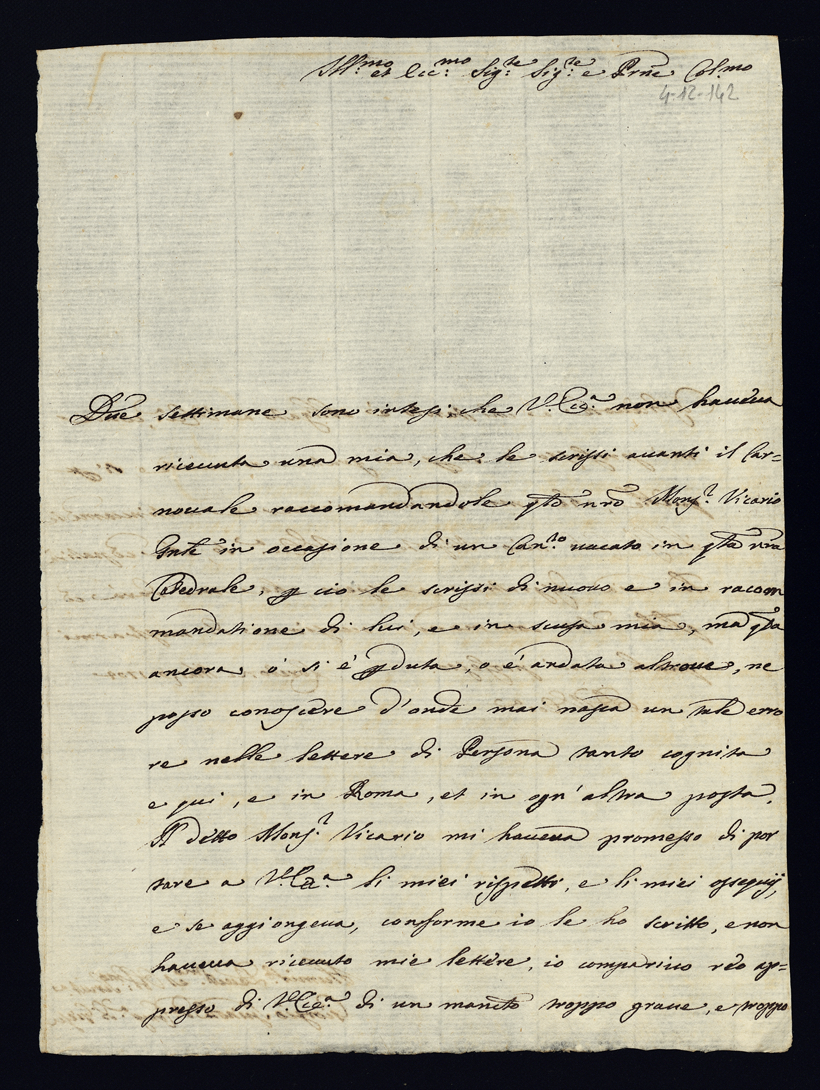 Ill.mo et Ecc.mo Sig.re Sig.re e Prne Col.mo
4-12-142
Due settimane sono intesi che V. Ecc.a non haueua
riceuuta una mia, che le scrissi auanti il Car=
nouale raccomandandole qto nro Mons.r Vicario
Gnle in occasione di un Can.to uacato in qta nra
Catedrale, p cio le scrissi di nuouo e in racom
mandatione di lui, e in scusa mia, ma qta
ancora ò si è pduta, o è andata altroue, ne
posso conoscere d'onde mai nasca un tale erro
re nelle lettere di Persona tanto cognita
e qui, e in Roma, et in ogn'altra posta.
Il detto Mons.r Vicario mi haueua promesso di por
tare a V. Ecc.a li miei rispetti, e li miei ossequij,
e se aggiongeua, conforme io le ho scritto, e non
haueua riceuuto mie lettere, io compariuo reo ap=
presso di V. Ecc.a di un mancto troppo graue, e troppo